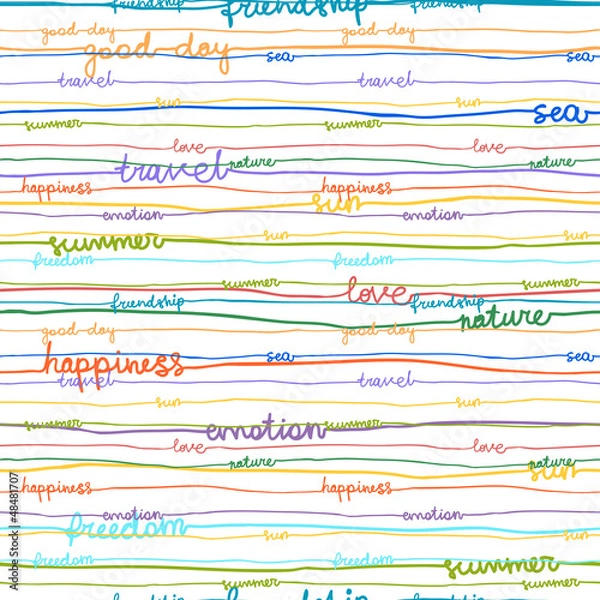 friendship friendship friendship
good-day good-day
good-day
sea sea
travel travel
sun sun
sea
summer summer
love love
nature nature
travel
happiness happiness
sun
emotion emotion
sun sun
summer
freedom freedom
summer summer
love
friendship friendship
nature
good-day good-day
sea sea
happiness
travel travel
sun sun
summer summer
emotion
love love
nature nature
sun
happiness happiness
emotion emotion
freedom
sun sun
freedom freedom
summer
summer summer
friendship friendship friendship
Adobe Stock | #48481707